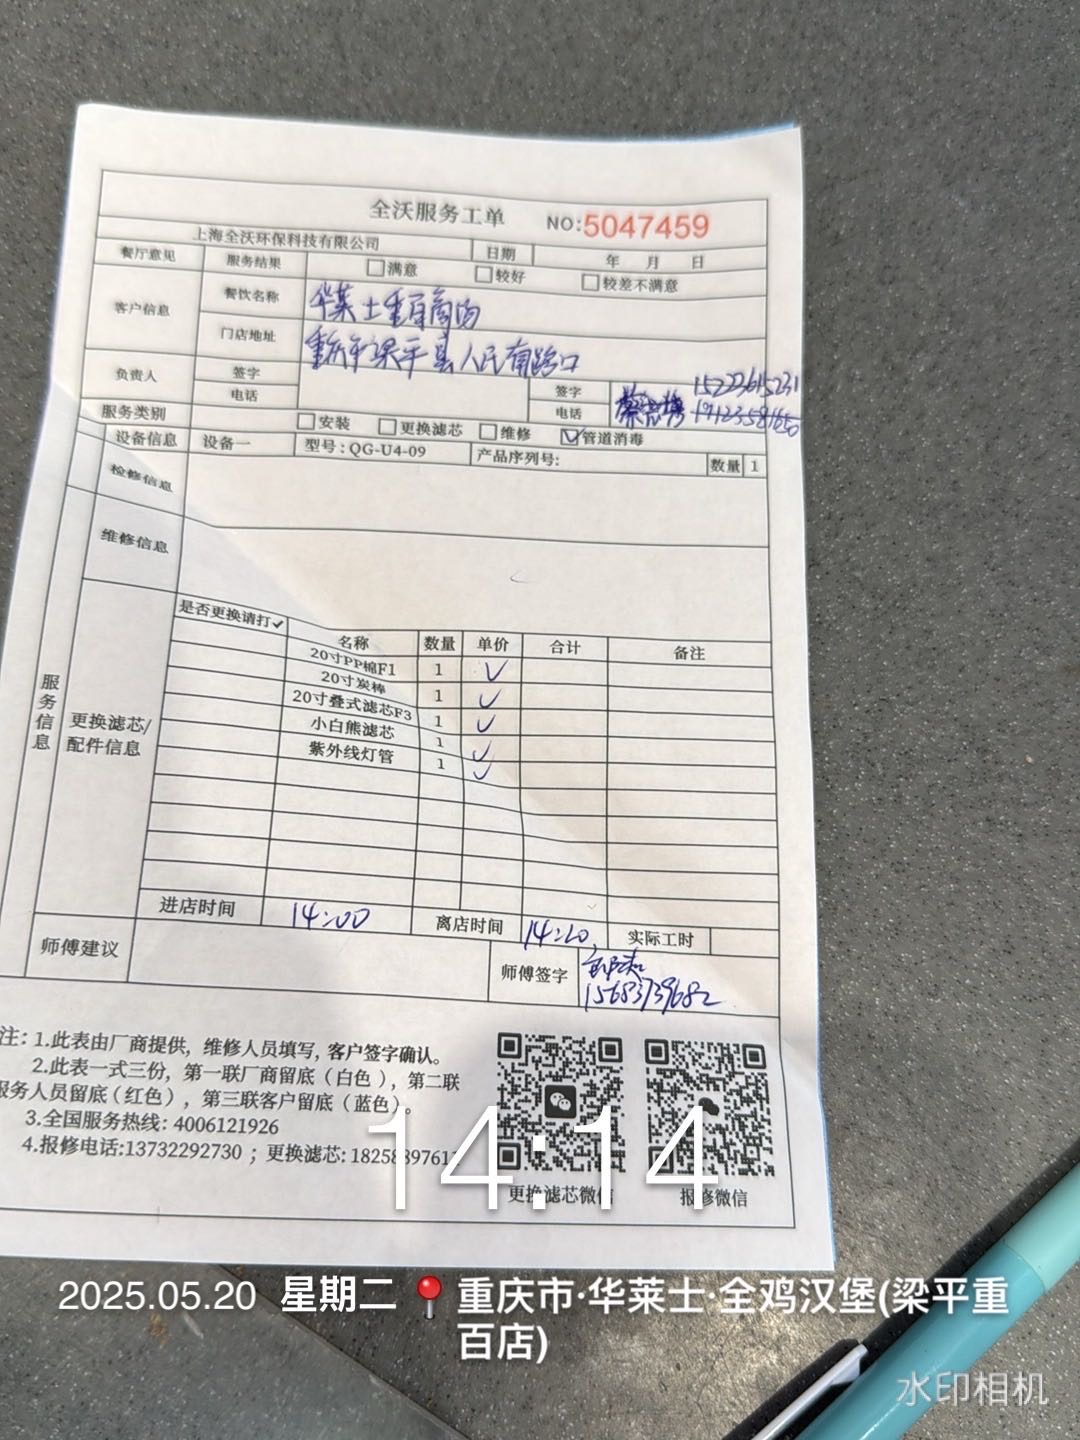 全沃服务工单 NO:5047459
上海全沃环保科技有限公司 日期 年 月 日
餐厅意见 服务结果 满意 较好 较差不满意
客户信息 餐饮名称 华莱士重百商场
门店地址 重庆市梁平县人民南路口
负责人 签字 签字 15223615231
电话 电话 19123581650
服务类别 安装 更换滤芯 维修 ✓管道消毒
设备信息 设备一 型号:QG-U4-09 产品序列号: 数量 1
检修信息
维修信息
服务信息
更换滤芯/
配件信息
是否更换请打✓ 名称 数量 单价 合计 备注
20寸PP棉F1 1 ✓
20寸炭棒 1 ✓
20寸叠式滤芯F3 1 ✓
小白熊滤芯 1 ✓
紫外线灯管 1 ✓
进店时间 14:00 离店时间 14:20 实际工时
师傅建议 师傅签字
15683739682
注: 1.此表由厂商提供, 维修人员填写, 客户签字确认。
2.此表一式三份, 第一联厂商留底 (白色), 第二联
服务人员留底 (红色), 第三联客户留底 (蓝色)。
3.全国服务热线: 4006121926
4.报修电话:13732292730 ; 更换滤芯:
更换滤芯微信 报修微信
14:14
2025.05.20 星期二 重庆市·华莱士·全鸡汉堡(梁平重
百店)
水印相机